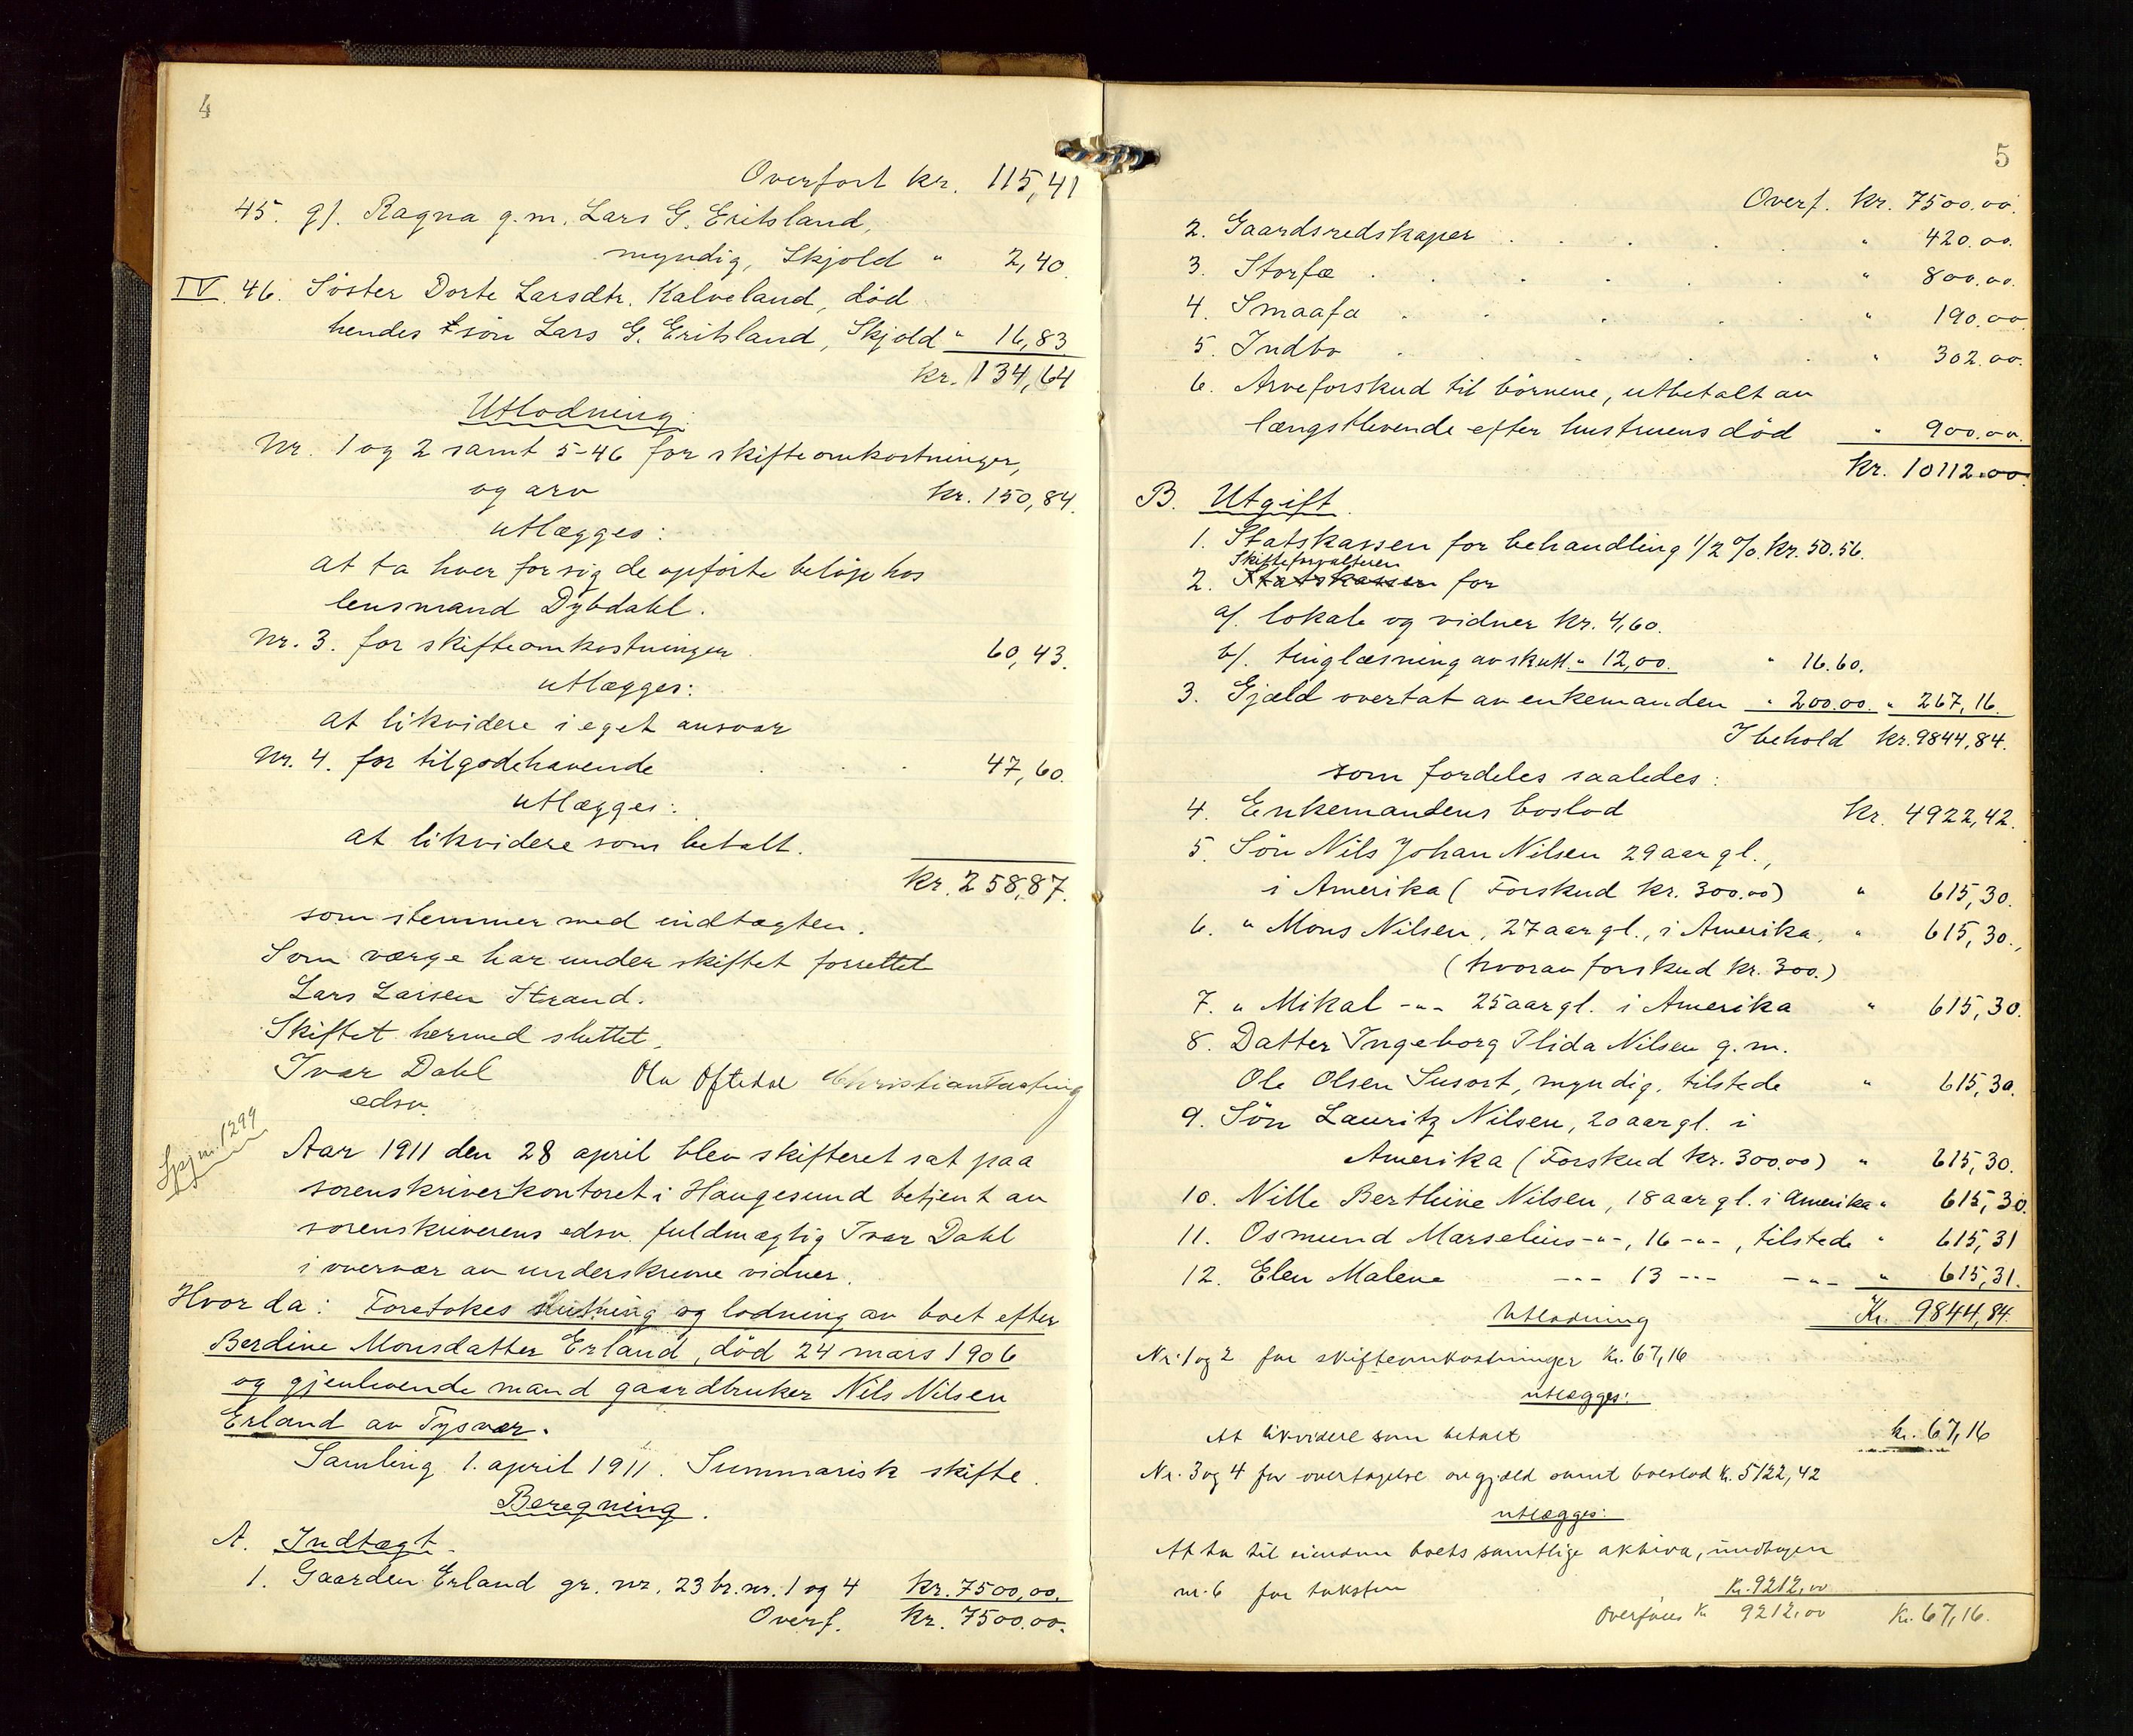 4
Overført kr. 115,41
45. g). Ragna g.m. Lars G. Eritsland,
myndig, Skjold " 2,40.
IV. 46. Søster Dorte Larsdtr. Kalveland, død
hendes søn Lars G. Eritsland, Skjold " 16,83
kr. 134,64
Utlodning:
Nr. 1 og 2 samt 5-46 for skifteomkostninger,
og arv kr. 150,84.
utlægges:
at ta hver for sig de opførte beløp hos
lensmand Dybdahl.
Nr. 3. for skifteomkostninger 60,43.
utlægges:
at likvidere i eget ansvar
Nr. 4. for tilgodehavende 47,60.
utlægges:
at likvidere som betalt.
kr. 258,87.
som stemmer med indtægten.
Som værge har under skiftet forrettet
Lars Larsen Strand.
Skiftet hermed sluttet.
Ivar Dahl Ola Oftedal Christian Tasting
edsv.
Spj nr. 1299
Aar 1911 den 28 april blev skifteret sat paa
sorenskriverkontoret i Haugesund betjent av
sorenskriverens edsv. fuldmægtig Ivar Dahl
i overvær av underskrevne vidner.
Hvor da: Foretokes slutning og lodning av boet efter
Berdine Monsdatter Erland, død 24 mars 1906
og gjenlevende mand gaardbruker Nils Nilsen
Erland av Tysvær.
Samling 1. april 1911. Summarisk skifte.
Beregning.
A. Indtægt.
1. Gaarden Erland gr. nr. 23 br. nr. 1 og 4 kr. 7500,00.
Overf. kr. 7500.00.
5
Overf. kr. 7500.00.
2. Gaardsredskaper . . . . " 420.00.
3. Storfæ . . . . " 800.00.
4. Smaafæ . . . . " 190.00
5. Indbo . . . . " 302.00.
6. Arveforskud til børnene, utbetalt av
længstlevende efter hustruens død " 900.00.
kr. 10112.00.
B. Utgift.
1. Statskassen for behandling 1/2 %. kr. 50.56.
Skifteforvalteren
2. Statskassen for
a/. lokale og vidner kr. 4,60.
b/. tinglæsning av skutl. " 12,00. " 16.60.
3. Gjæld overtat av enkemanden " 200.00. " 267,16.
I behold kr. 9844,84.
som fordeles saaledes:
4. Enkemandens boslod kr. 4922,42.
5. Søn Nils Johan Nilsen 29 aar gl.,
i Amerika (Forskud kr. 300.00) " 615,30.
6. " Mons Nilsen, 27 aar gl., i Amerika, " 615,30.,
(hvorav forskud kr. 300.)
7. " Mikal -"- 25 aar gl. i Amerika " 615,30.
8. Datter Ingeborg Ilida Nilsen g.m.
Ole Olsen Susort, myndig, tilstede " 615,30.
9. Søn Lauritz Nilsen, 20 aar gl. i
Amerika (Forskud kr. 300.00) " 615,30.
10. Nille Berthine Nilsen, 18 aar gl. i Amerika " 615,30.
11. Osmund Marselius -"-, 16 -"-, tilstede " 615,31
12. Elen Malene -"- 13 -"- -"- " 615,31.
Utlodning Kr. 9844,84.
Nr. 1 og 2 for skifteomkostninger kr. 67,16
utlægges:
At likvidere som betalt kr. 67,16
Nr. 3 og 4 for overtagelse av gjæld samt boslod kr. 5122,42
utlægges:
At ta til eiendom boets samtlige aktiva, undtagen
nr. 6 for taksten kr. 9212,00
Overføres Kr 9212,00 Kr. 67,16.